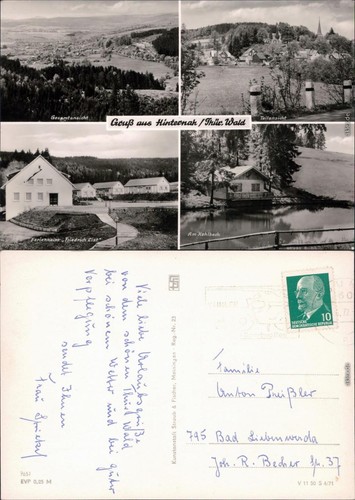 Gesamtansicht
Teilansicht
Gruß aus Hinternah / Thür. Wald
Ferienheim „Friedrich List“
Am Nahlbach
Viele liebe Urlaubsgrüße
von dem schönen Thür. Wald
bei schönem Wetter und bei guter
Verpflegung
sendet Ihnen
Frau
Kunstverlag Straub & Fischer, Meiningen Reg.-Nr. 25
EVP 0,20 M
DEUTSCHE
DEMOKRATISCHE REPUBLIK
10
Familie
Anton Preißler
795 Bad Liebenwerda
Joh. R. Becher Str. 37
V 11 50 S 4/71